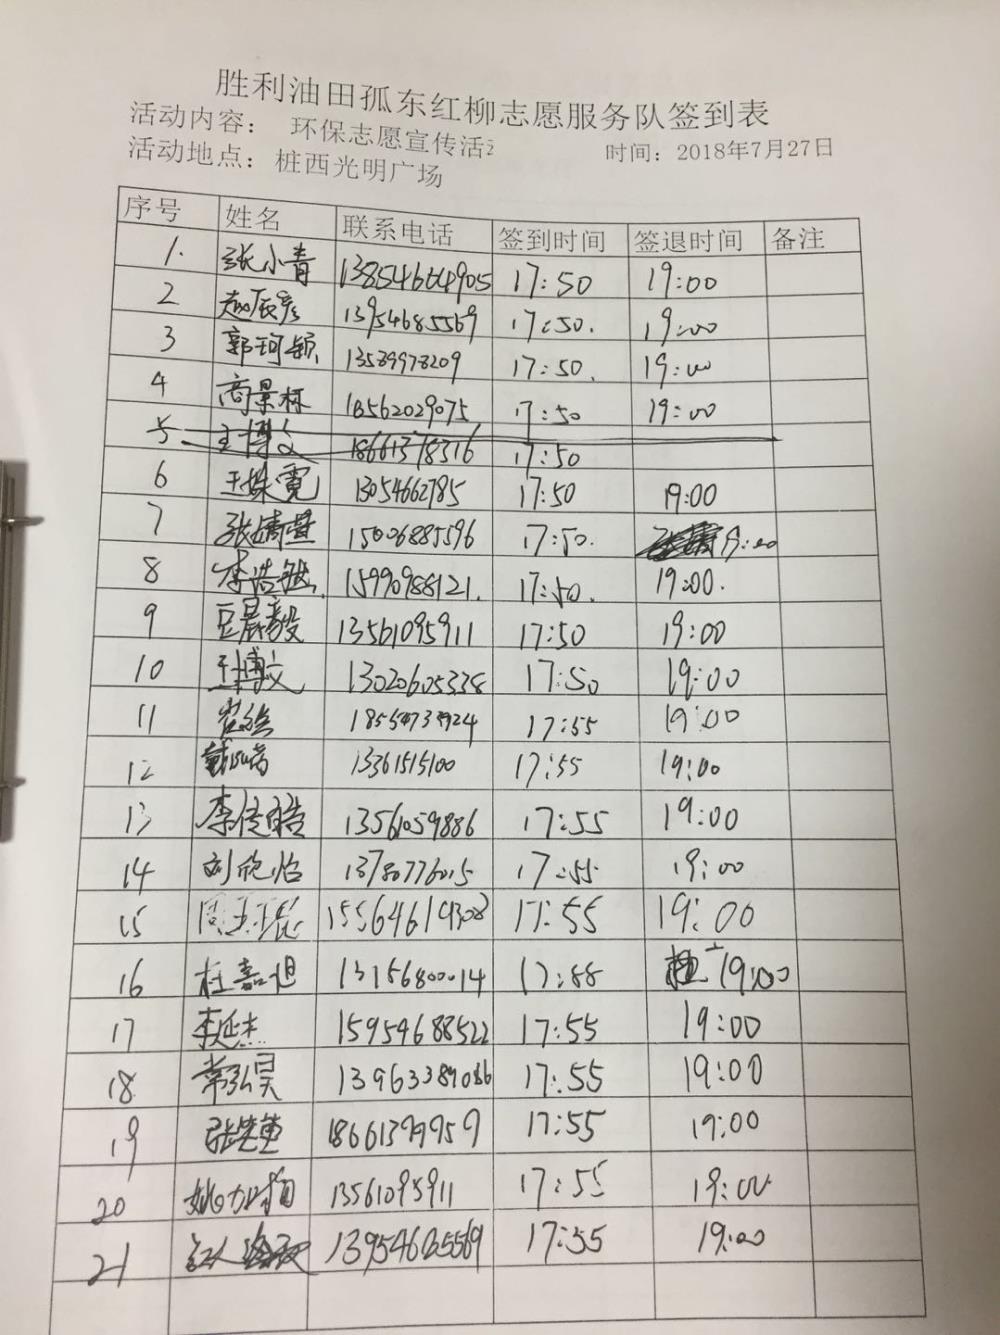 胜利油田孤东红柳志愿服务队签到表
活动内容： 环保志愿宣传活
时间：2018年7月27日
活动地点：桩西光明广场
序号 姓名 联系电话 签到时间 签退时间 备注
1. 张小青 13854664905 17:50 19:00
2 赵辰彦 13954685569 17:50. 19:00
3 郭珂颖 13589978209 17:50. 19:00
4 高景林 18562029075 17:50 19:00
5 王博文 18661378316 17:50
6 王姝霓 13054662785 17:50 19:00
7 张婧萱 15006885596 17:50. 19:00
8 李浩 15990988121. 17:50. 19:00.
9 豆晨毅 13561095911 17:50 19:00
10 王博文 13020605338 17:50 19:00
11 17:55 19:00
12 13361515100 17:55 19:00
13 李俊皓 13561059886 17:55 19:00
14 刘欣怡 13780776015 17:55 19:00
15 周玉琨 15564614308 17:55 19:00
16 杜嘉旭 13156800014 17:88 19:00
17 李延杰 15954688522 17:55 19:00
18 常弘昊 13963389086 17:55 19:00
19 18661399959 17:55 19:00
20 13561095911 17:55 19:00
21 17:55 19:00